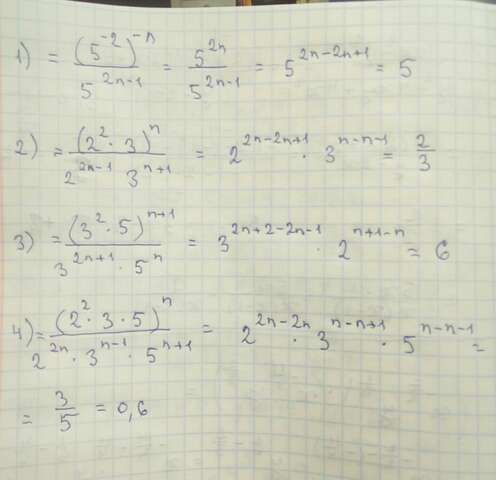 1) = (5^-2)^-n / 5^2n-1 = 5^2n / 5^2n-1 = 5^2n-2n+1 = 5
2) = (2^2 · 3)^n / 2^2n-1 3^n+1 = 2^2n-2n+1 · 3^n-n-1 = 2/3
3) = (3^2 · 5)^n+1 / 3^2n+1 · 5^n = 3^2n+2-2n-1 · 2^n+1-n = 6
4) = (2^2 · 3 · 5)^n / 2^2n · 3^n-1 · 5^n+1 = 2^2n-2n · 3^n-n+1 · 5^n-n-1 =
= 3/5 = 0,6